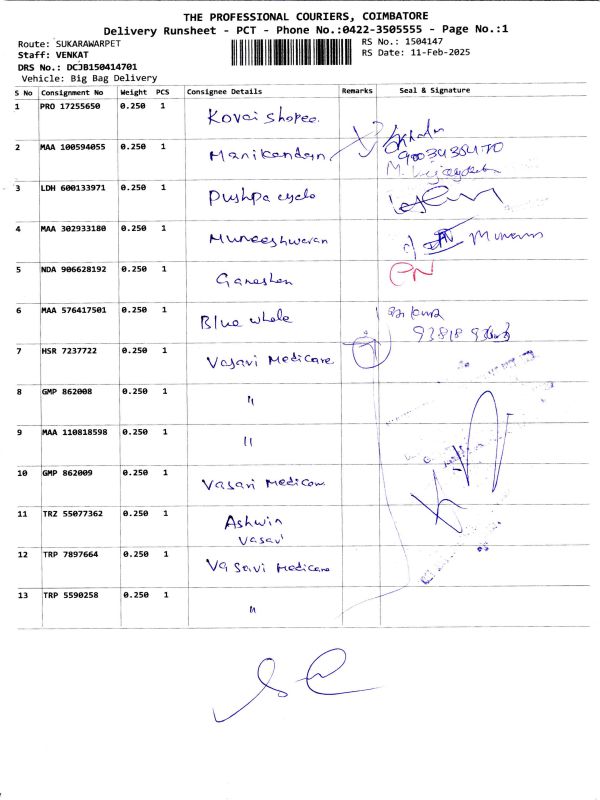 THE PROFESSIONAL COURIERS, COIMBATORE
Delivery Runsheet - PCT - Phone No.:0422-3505555 - Page No.:1
Route: SUKARAWARPET
RS No.: 1504147
Staff: VENKAT
RS Date: 11-Feb-2025
DRS No.: DCJB150414701
Vehicle: Big Bag Delivery
S No Consignment No Weight PCS Consignee Details Remarks Seal & Signature
1 PRO 17255650 0.250 1 Kovai Shopee
2 MAA 100594055 0.250 1 Manikandan
3 LDH 600133971 0.250 1 Pushpa cyclo
4 MAA 302933180 0.250 1 Muneeshwaran
5 NDA 906628192 0.250 1 Ganeshan PN
6 MAA 576417501 0.250 1 Blue whale
7 HSR 7237722 0.250 1 Vasavi Medicare
8 GMP 862008 0.250 1 "
9 MAA 110818598 0.250 1 "
10 GMP 862009 0.250 1 Vasavi Medicare
11 TRZ 55077362 0.250 1 Ashwin
Vasavi
12 TRP 7897664 0.250 1 Vasavi Medicare
13 TRP 5590258 0.250 1 "